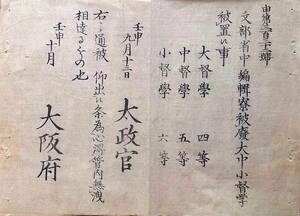 申第三百
文部省中編輯寮被廢大中小督學
被置候事
大督學 四等
中督學 五等
小督學 六等
壬申九月十三日 太政官
右之通被 仰出候条為心得管内無洩
相達るもの也
壬申十月 大阪府